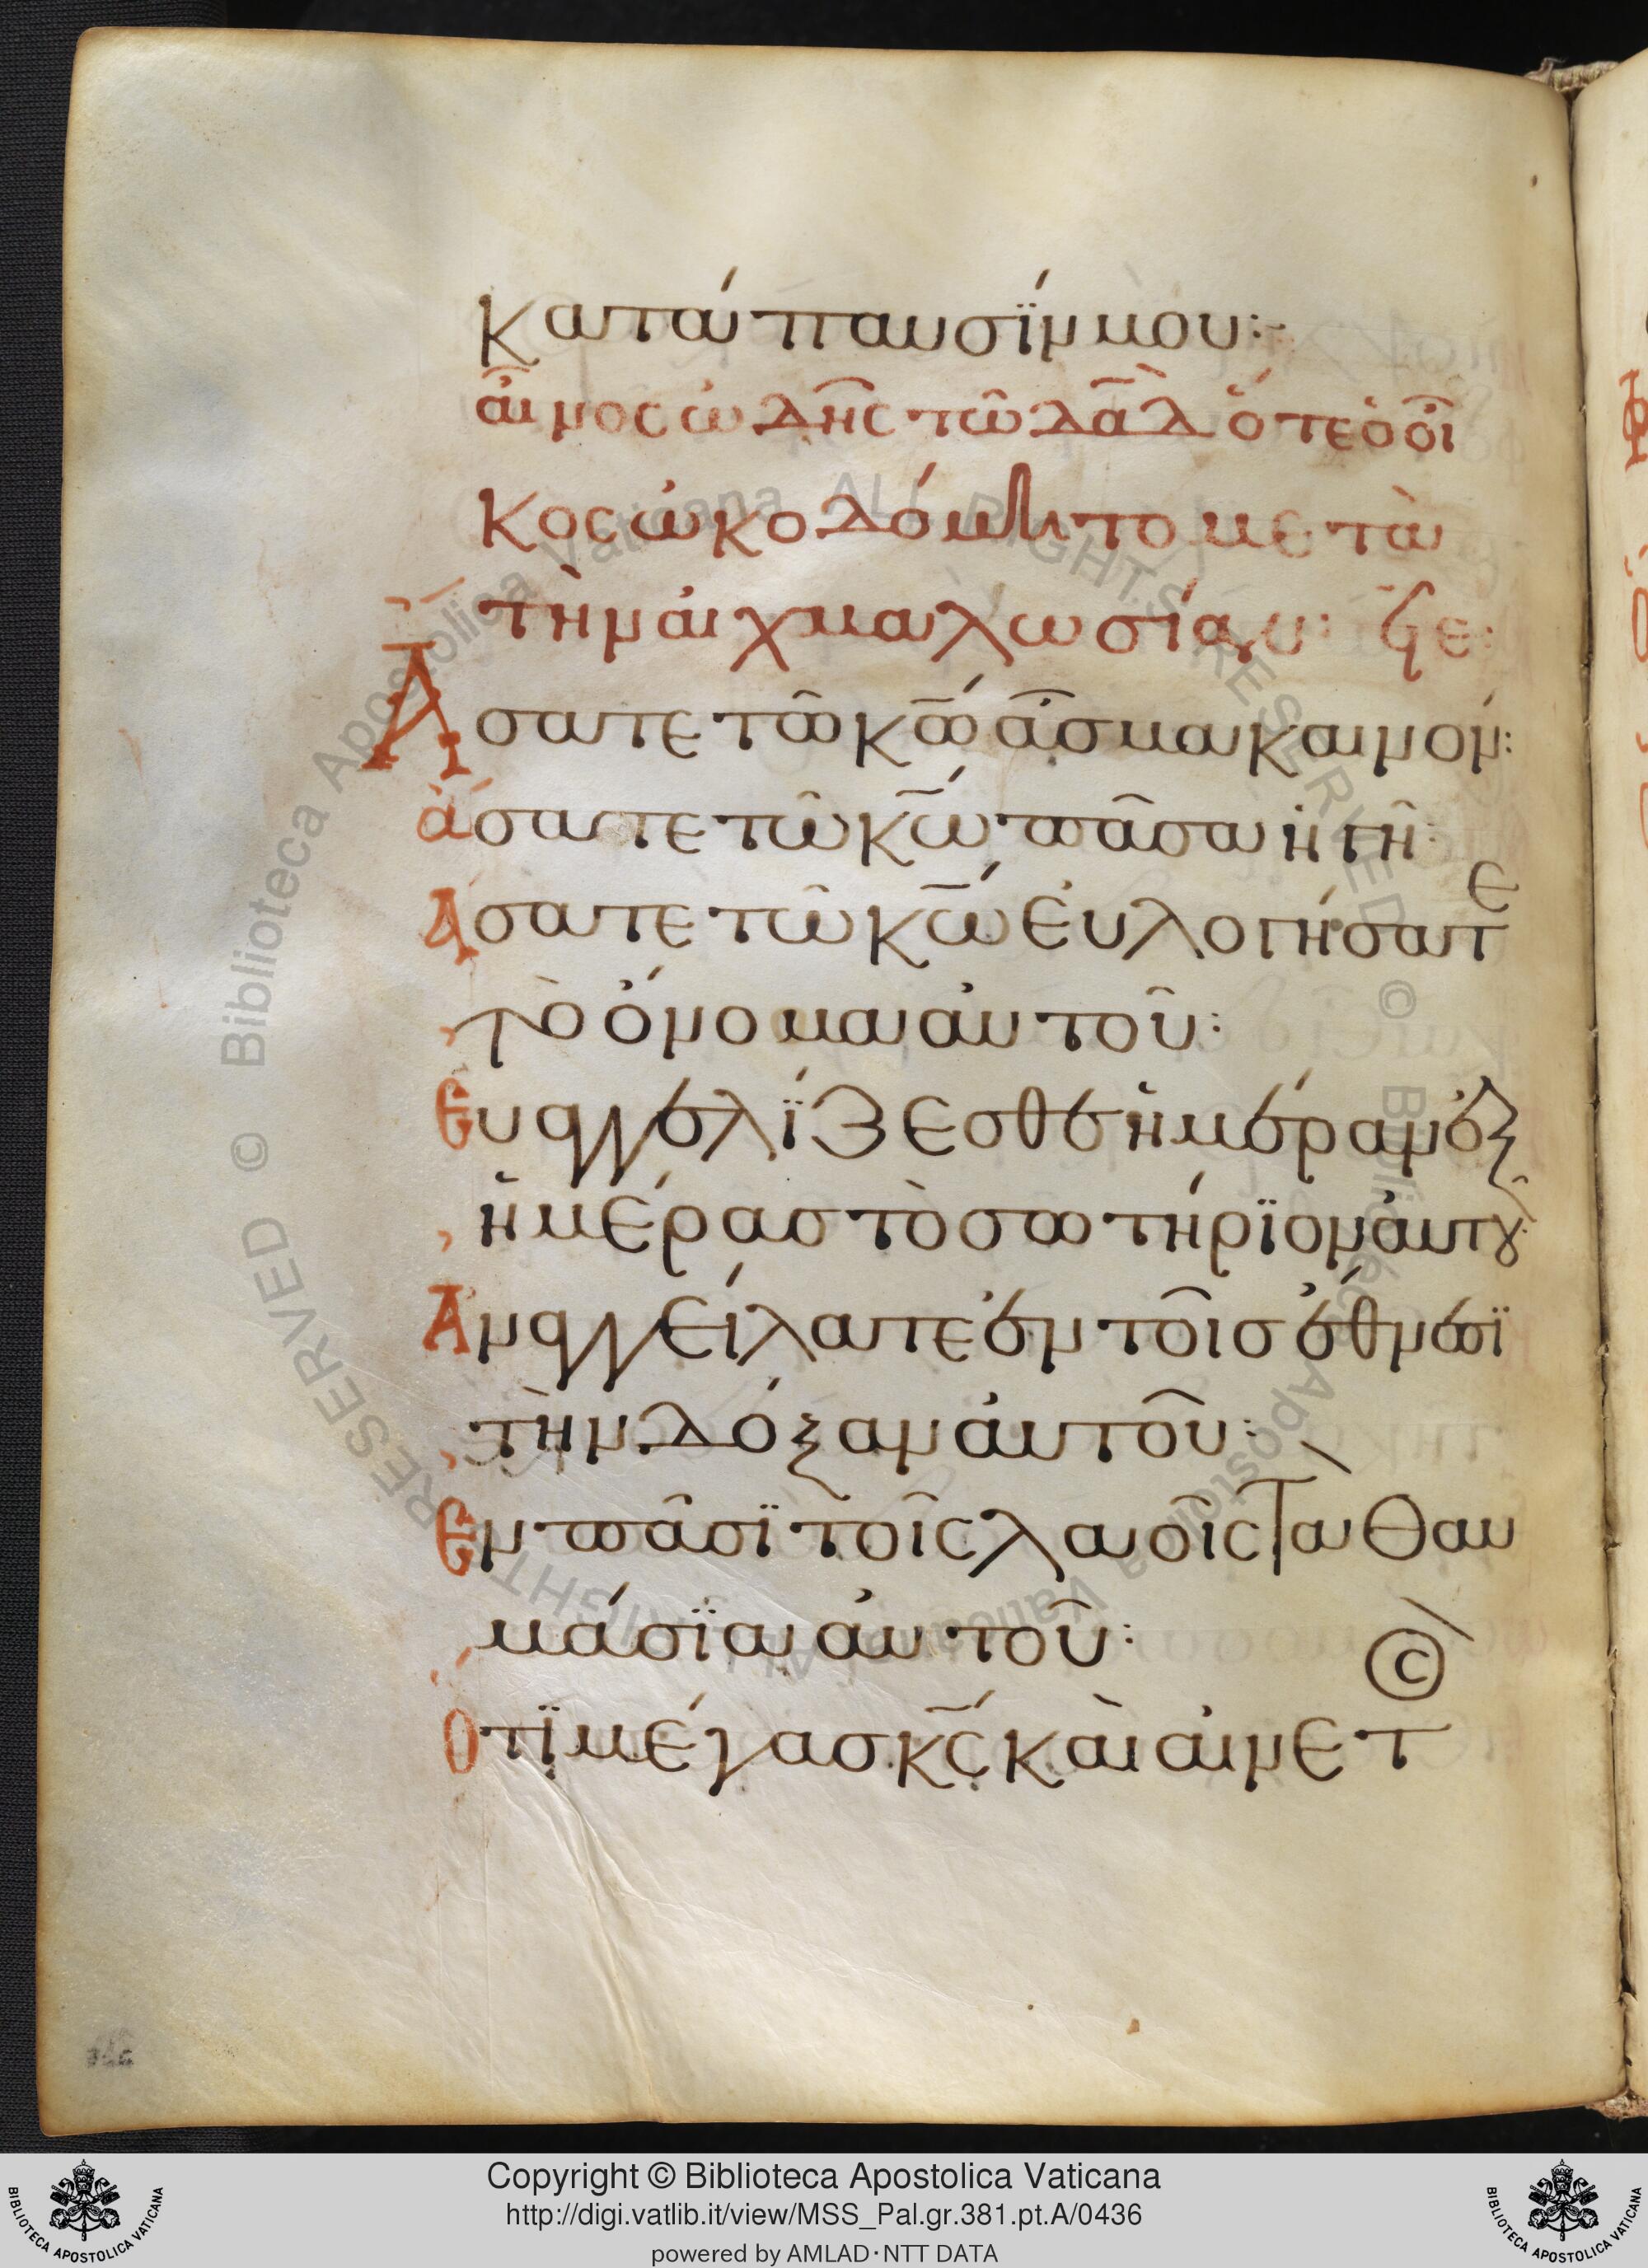 κατάπαυσίν μου:
αἶνος ὠδῆς τῶ δαδ ὅτε ὁ οἶ
κος ὠκοδόμητο μετὰ
τὴν αἰχμαλωσίαν: ϟε:
Ἄσατε τῶ κω ἆσμα καινόν:
ἄσατε τῶ κω πᾶσα ἡ γῆ:
Ἄσατε τῶ κω εὐλογήσατε
τὸ ὄνομα αὐτοῦ:
Εὐαγγελίζεσθε ἡμέραν ἐξ
ἡμέρας τὸ σωτήριον αὐτοῦ:
Ἀναγγείλατε ἐν τοῖς ἔθνεσι
τὴν δόξαν αὐτοῦ:
Ἐν πᾶσι τοῖς λαοῖς τὰ θαυ
μάσια αὐτοῦ:
Ὅτι μέγας κς καὶ αἰνετ
ος
Copyright © Biblioteca Apostolica Vaticana
http://digi.vatlib.it/view/MSS_Pal.gr.381.pt.A/0436
powered by AMLAD·NTT DATA
BIBLIOTECA APOSTOLICA VATICANA
BIBLIOTECA APOSTOLICA VATICANA